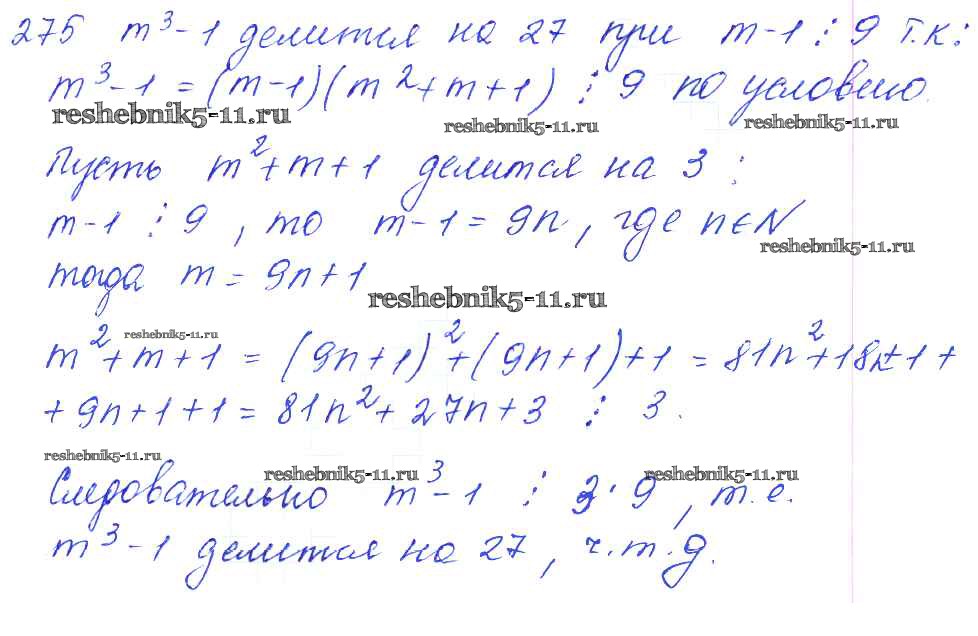 275 m³-1 делится на 27 при m-1 ⋮ 9 т.к:
m³-1 = (m-1)(m²+m+1) ⋮ 9 по условию.
reshebnik5-11.ru reshebnik5-11.ru reshebnik5-11.ru
Пусть m²+m+1 делится на 3 :
m-1 ⋮ 9, то m-1 = 9n, где n∈N
reshebnik5-11.ru
тогда m = 9n+1
reshebnik5-11.ru
reshebnik5-11.ru
m²+m+1 = (9n+1)²+(9n+1)+1 = 81n²+18n+1+
+9n+1+1 = 81n²+27n+3 ⋮ 3.
reshebnik5-11.ru reshebnik5-11.ru reshebnik5-11.ru
Следовательно m³-1 ⋮ 3·9, т.е.
m³-1 делится на 27, ч.т.д.